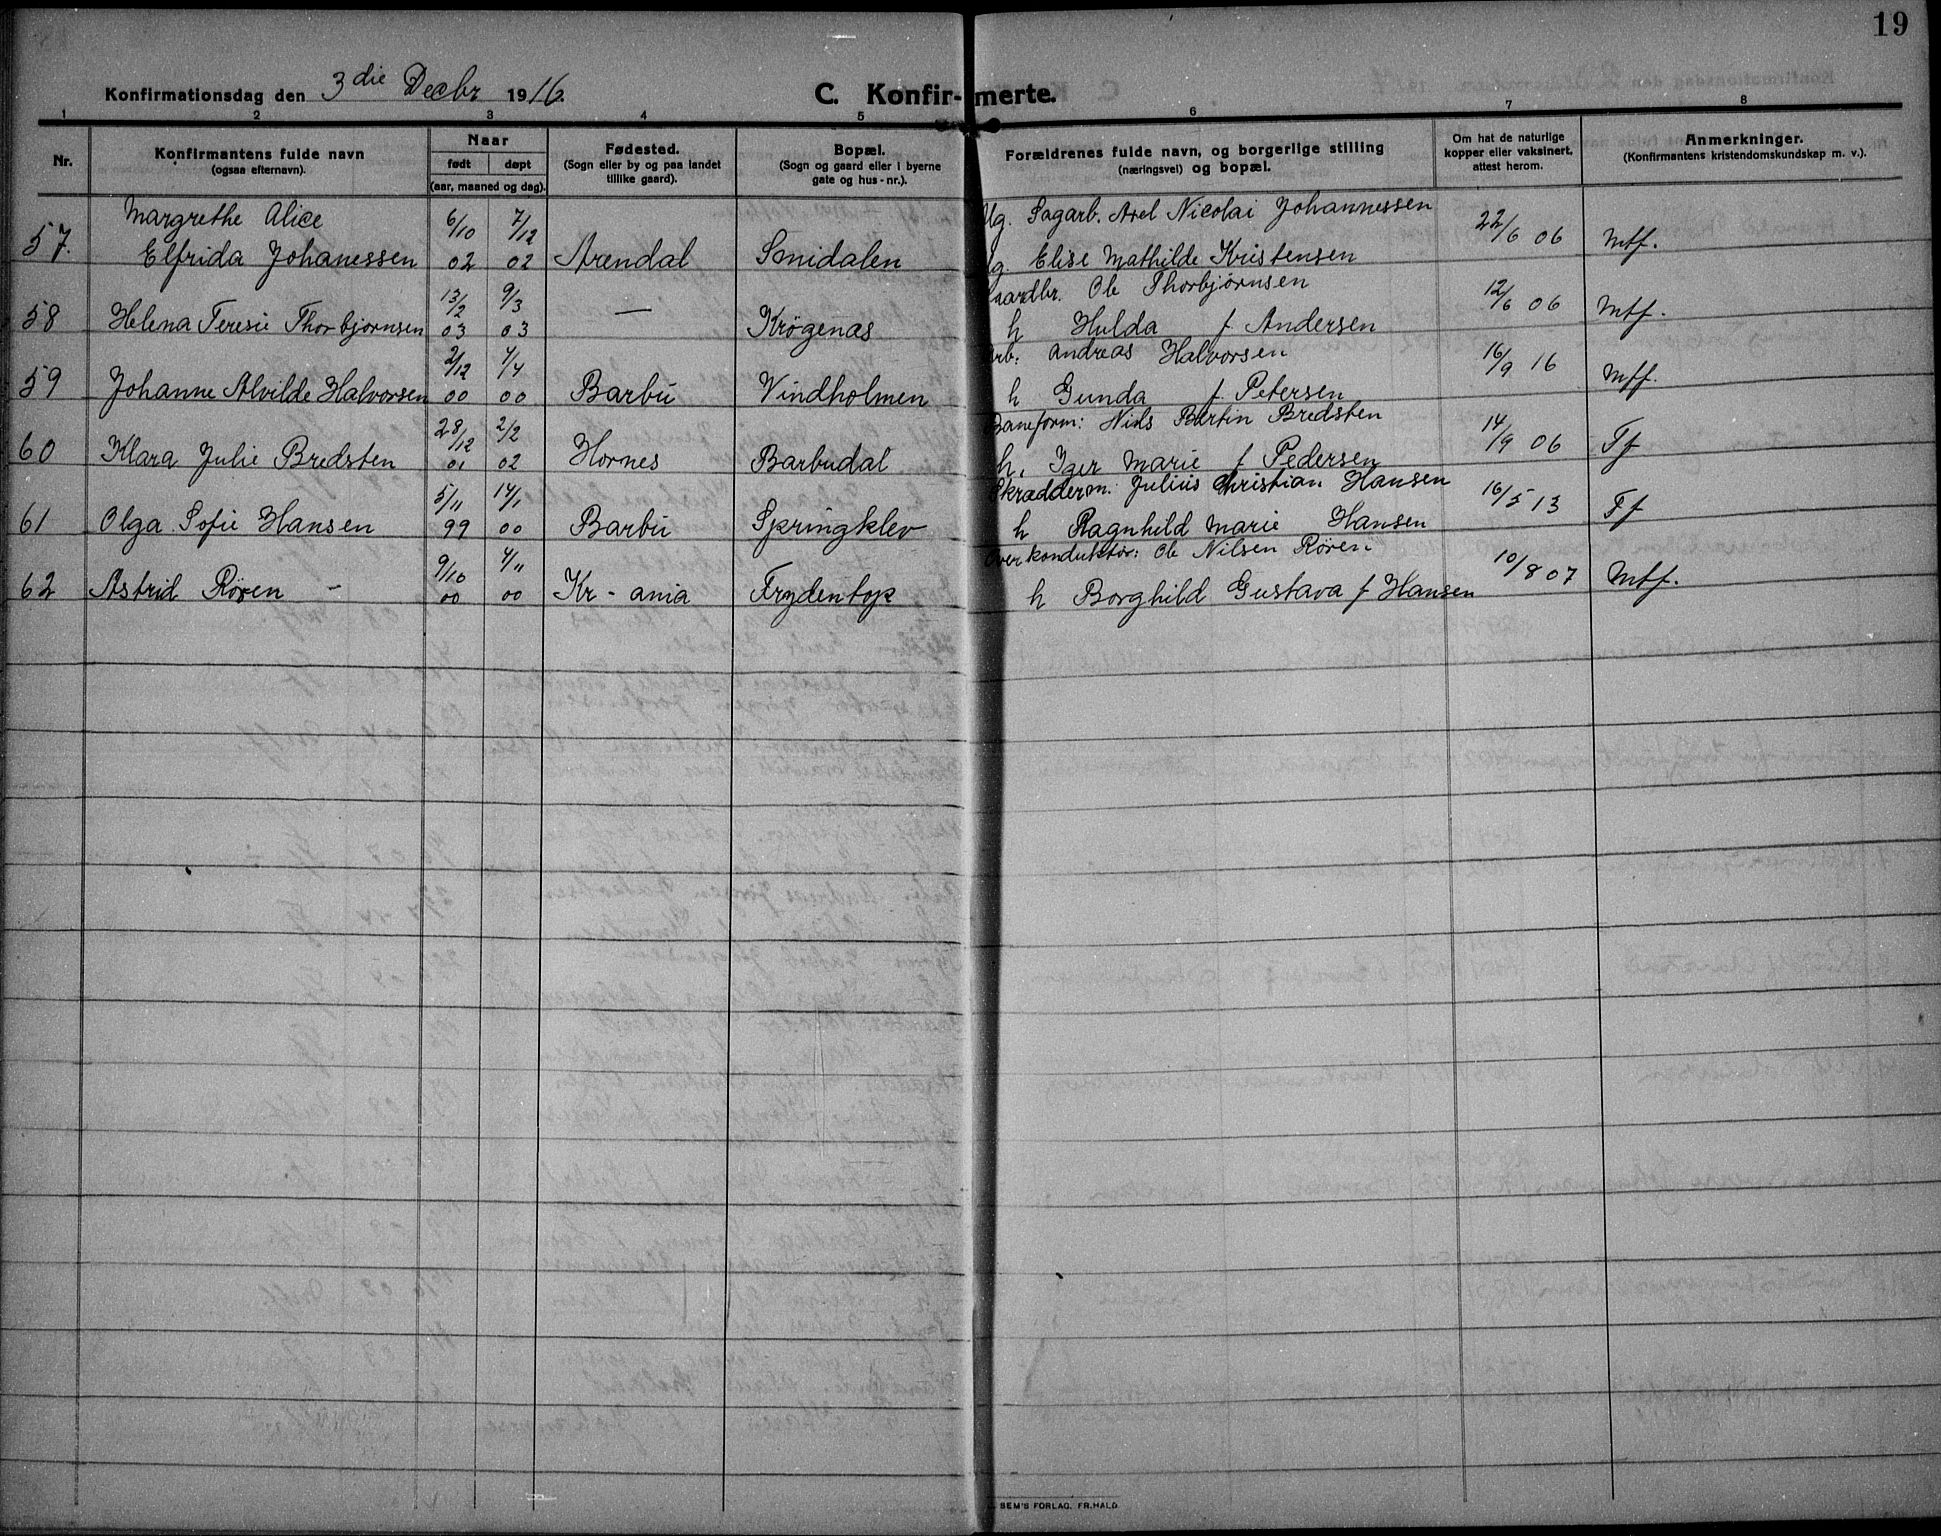 19
Konfirmationsdag den 3die Decbr 1916. C. Konfir-merte.
1 2 3 4 5 6 7 8
Nr. Konfirmantens fulde navn (ogsaa efternavn). Naar født døpt (aar, maaned og dag). Fødested. (Sogn eller by og paa landet tillike gaard). Bopæl. (Sogn og gaard eller i byerne gate og hus-nr.). Forældrenes fulde navn, og borgerlige stilling (næringsvei) og bopæl. Om hat de naturlige kopper eller vaksinert, attest herom. Anmerkninger. (Konfirmantens kristendomskundskap m. v.).
Margrethe Alice 6/10 7/12 Ug. Sagarb. Axel Nicolai Johannessen 22/6 06
57. Elfrida Johanessen 02 02 Arendal Smidalen Ug. Elise Mathilde Kristensen Mtf.
13/2 9/3 Gaardbr. Ole Thorbjørnsen 12/6 06
58 Helena Teresie Thorbjørnsen 03 03 — Krøgenas h Hulda f Andersen Mtf.
2/12 4/4 Arb: Andreas Halvorsen 16/9 16
59 Johanne Alvilde Halvorsen 00 00 Barbu Vindholmen h Gunda f. Petersen Mtf.
28/12 2/2 Baneform: Nils Bertin Bredsten 14/9 06
60 Klara Julie Bredsten 01 02 Hornes Barbudal h. Iger Marie f Pedersen Tf
5/11 14/1 Skrædderm: Julius Christian Hansen 16/5 13
61 Olga Sofie Hansen 99 00 Barbu Springklev h Ragnhild Marie Hansen Tf
9/10 4/11 Overkonduktør: Ole Nilsen Røren 10/8 07
62 Astrid Røren - 00 00 Kr-ania Frydentop h Borghild Gustava f Hansen Mtf.
SEM'S FORLAG. FR.HALD